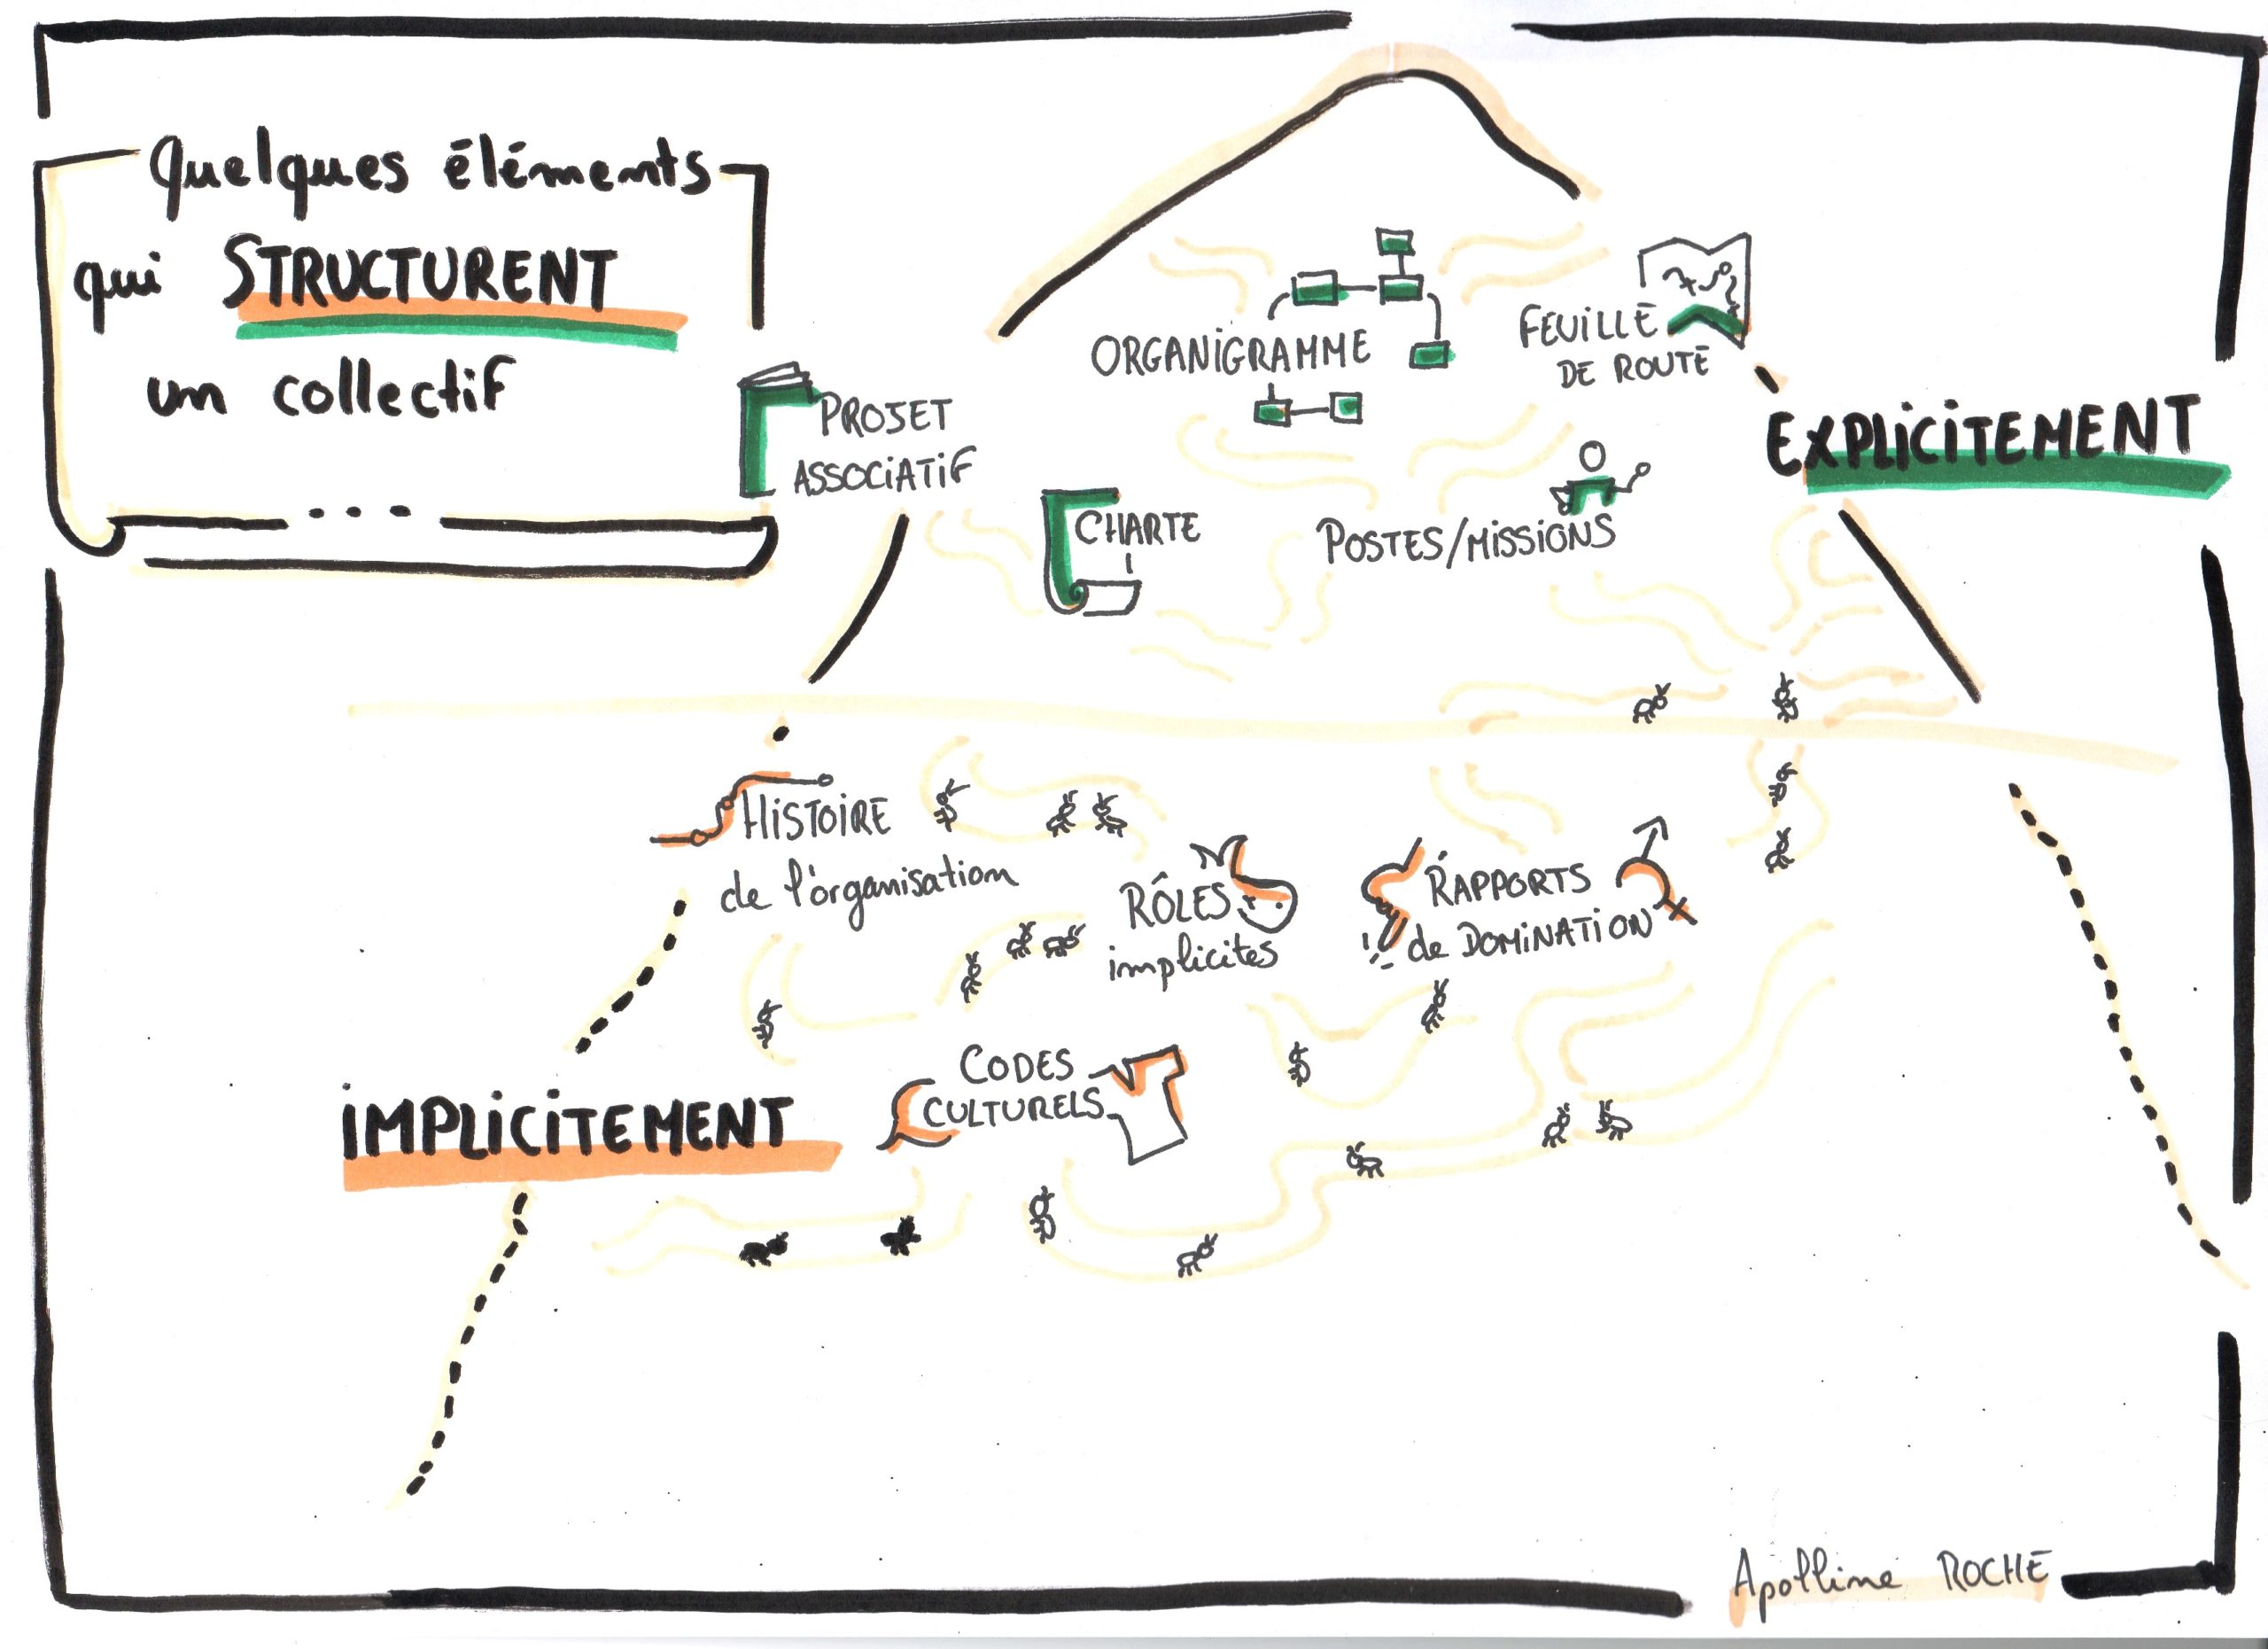 Quelques éléments
qui STRUCTURENT
un collectif
...
ORGANIGRAMME
FEUILLE
DE ROUTE
PROJET
ASSOCIATIF
EXPLICITEMENT
CHARTE
POSTES/MISSIONS
HISTOIRE
de l'organisation
RÔLES
implicites
RAPPORTS
de DOMINATION
CODES
CULTURELS
IMPLICITEMENT
Apolline ROCHE